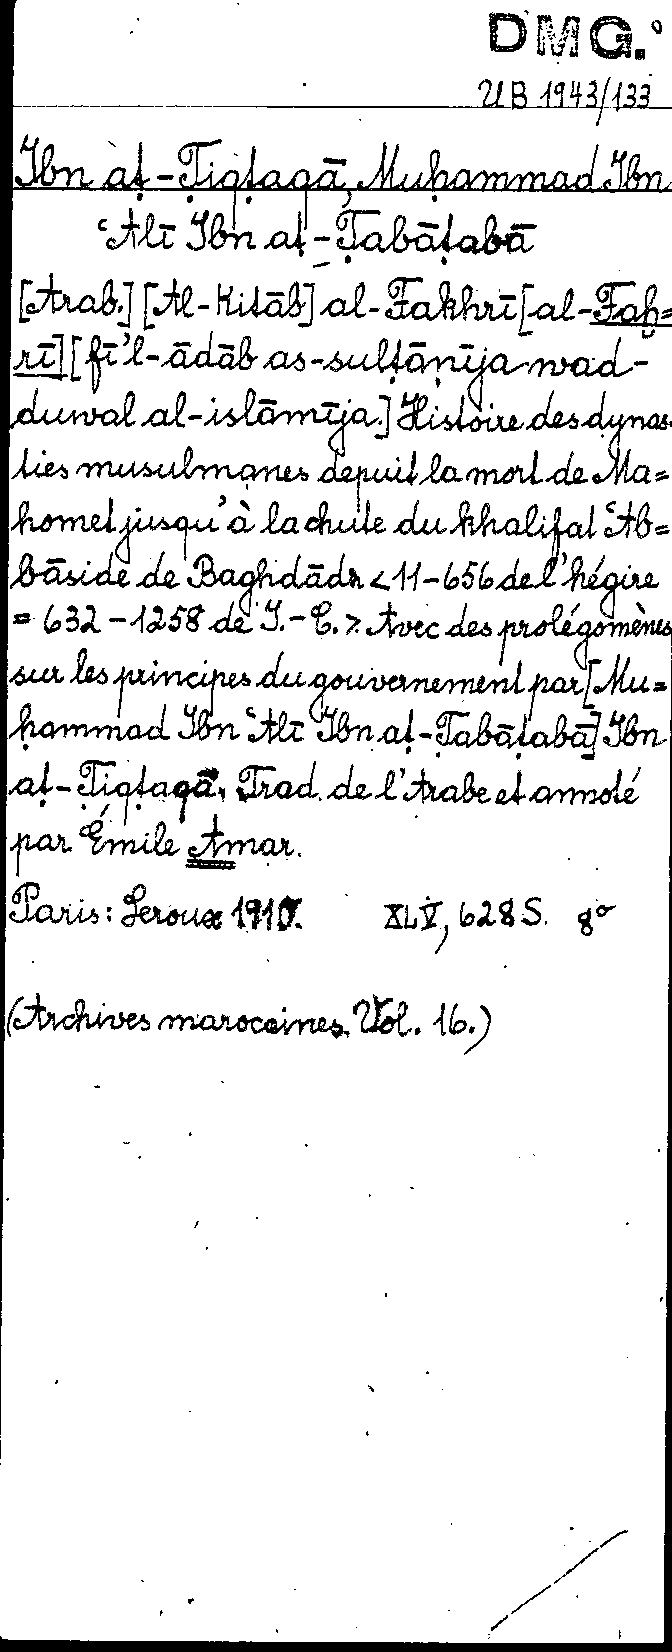 DMG.
UB 1943/133
Ibn aṭ-Ṭiqṭaqā, Muḥammad Ibn
ʿAlī Ibn aṭ-Ṭabāṭabā
[Arab.] [Al-Kitāb] al-Fakhrī [al-Faḫ=
rī] [fī'l-ādāb as-sulṭānīja wad-
duwal al-islāmīja.] Histoire des dynas-
ties musulmanes depuit la mort de Ma=
homet jusqu'à la chute du khalifat ʿAb=
bāside de Baghdādh <11-656 de l'hégire
= 632-1258 de J.-C.> Avec des prolégomènes
sur les principes du gouvernement par [Mu=
ḥammad Ibn ʿAlī Ibn aṭ-Ṭabāṭabā] Ibn
aṭ-Ṭiqṭaqā. Trad. de l'Arabe et annoté
par Émile Amar.
Paris: Leroux 1910. XLV, 628 S. 8°
(Archives marocaines. Vol. 16.)